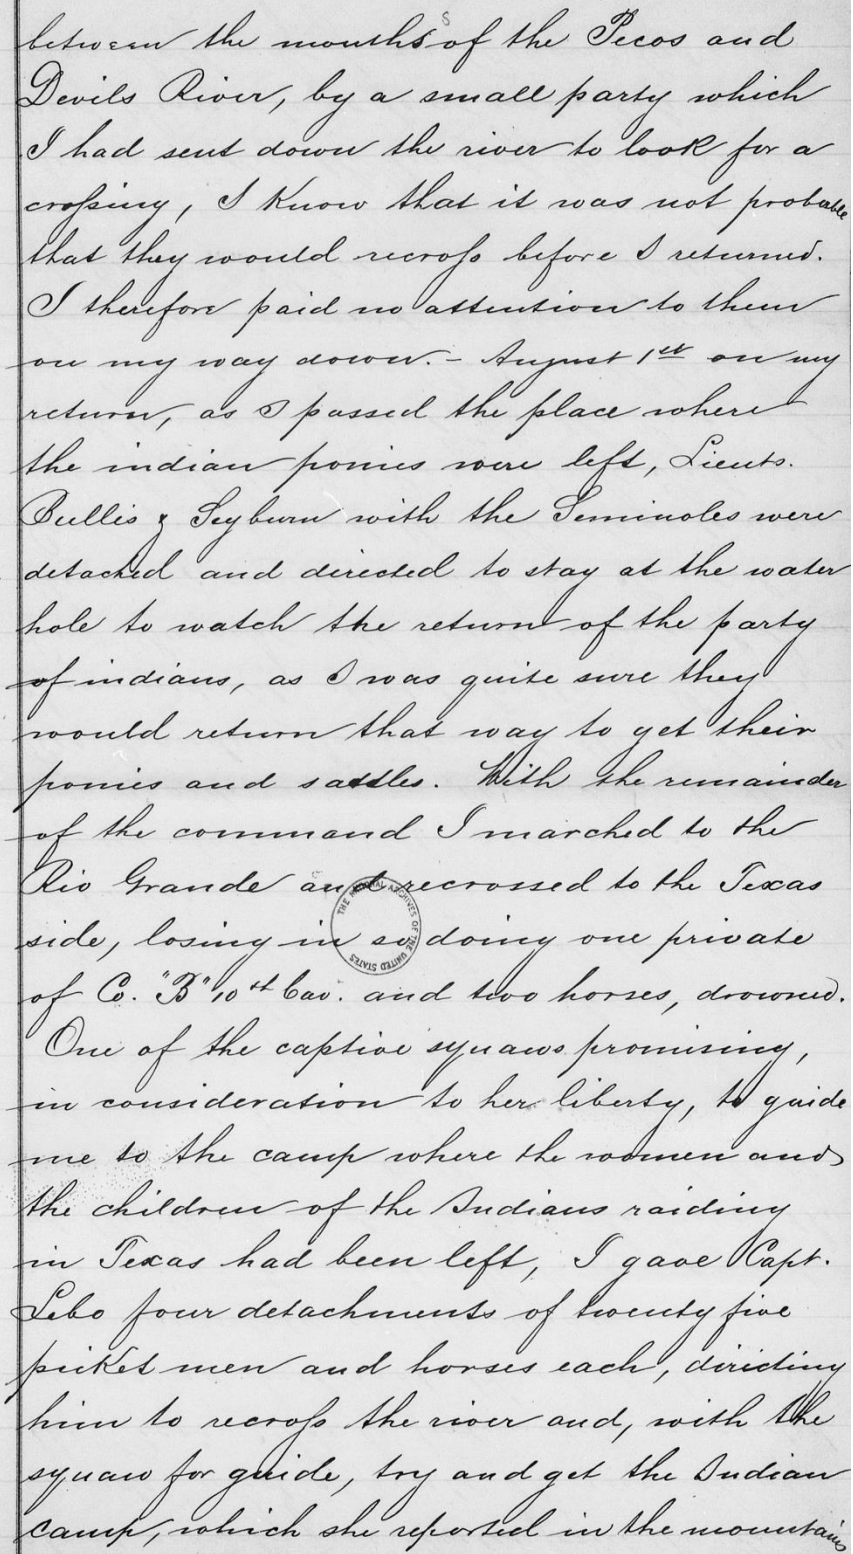 between the mouths of the Pecos and
Devils River, by a small party which
I had sent down the river to look for a
crossing, I know that it was not probable
that they would recross before I returned.
I therefore paid no attention to them
on my way down. - August 1st on my
return, as I passed the place where
the indian ponies were left, Lieuts.
Bullis & Seyburn with the Seminoles were
detached and directed to stay at the water
hole to watch the return of the party
of indians, as I was quite sure they
would return that way to get their
ponies and saddles. With the remainder
of the command I marched to the
Rio Grande and recrossed to the Texas
side, losing in so doing one private
of Co. "B" 10th Cav. and two horses, drowned.
One of the captive squaws promising,
in consideration to her liberty, to guide
me to the camp where the women and
the children of the Indians raiding
in Texas had been left, I gave Capt.
Lebo four detachments of twenty five
picket men and horses each, directing
him to recross the river and, with the
squaw for guide, try and get the Indian
camp, which she reported in the mountains
THE NATIONAL ARCHIVES OF THE UNITED STATES